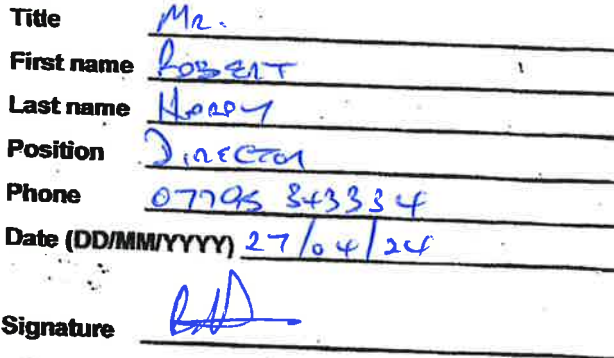 Title Mr.
First name ROBERT
Last name HARDY
Position DIRECTOR
Phone 07795 343334
Date (DD/MM/YYYY) 27/04/24
Signature